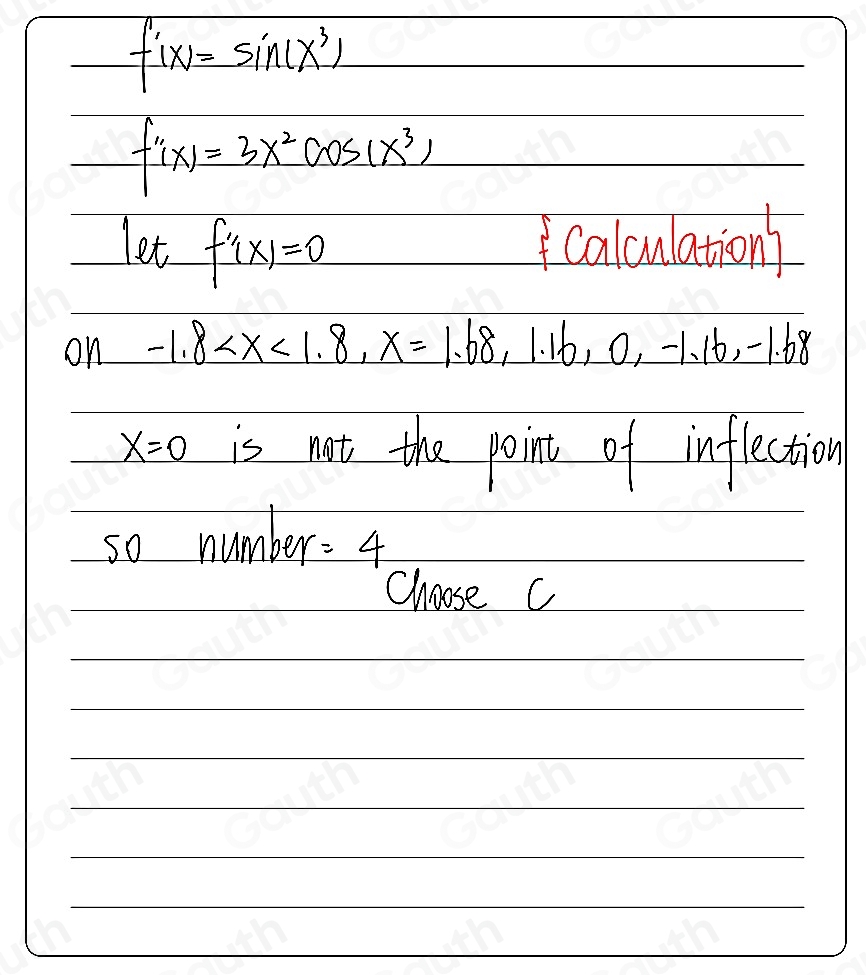 f'(x) = sin(x³)
f''(x) = 3x² cos(x³)
let f''(x)=0 {Calculation}
on -1.8<x<1.8, x = 1.68, 1.16, 0, -1.16, -1.68
x=0 is not the point of inflection
so number = 4
Choose C